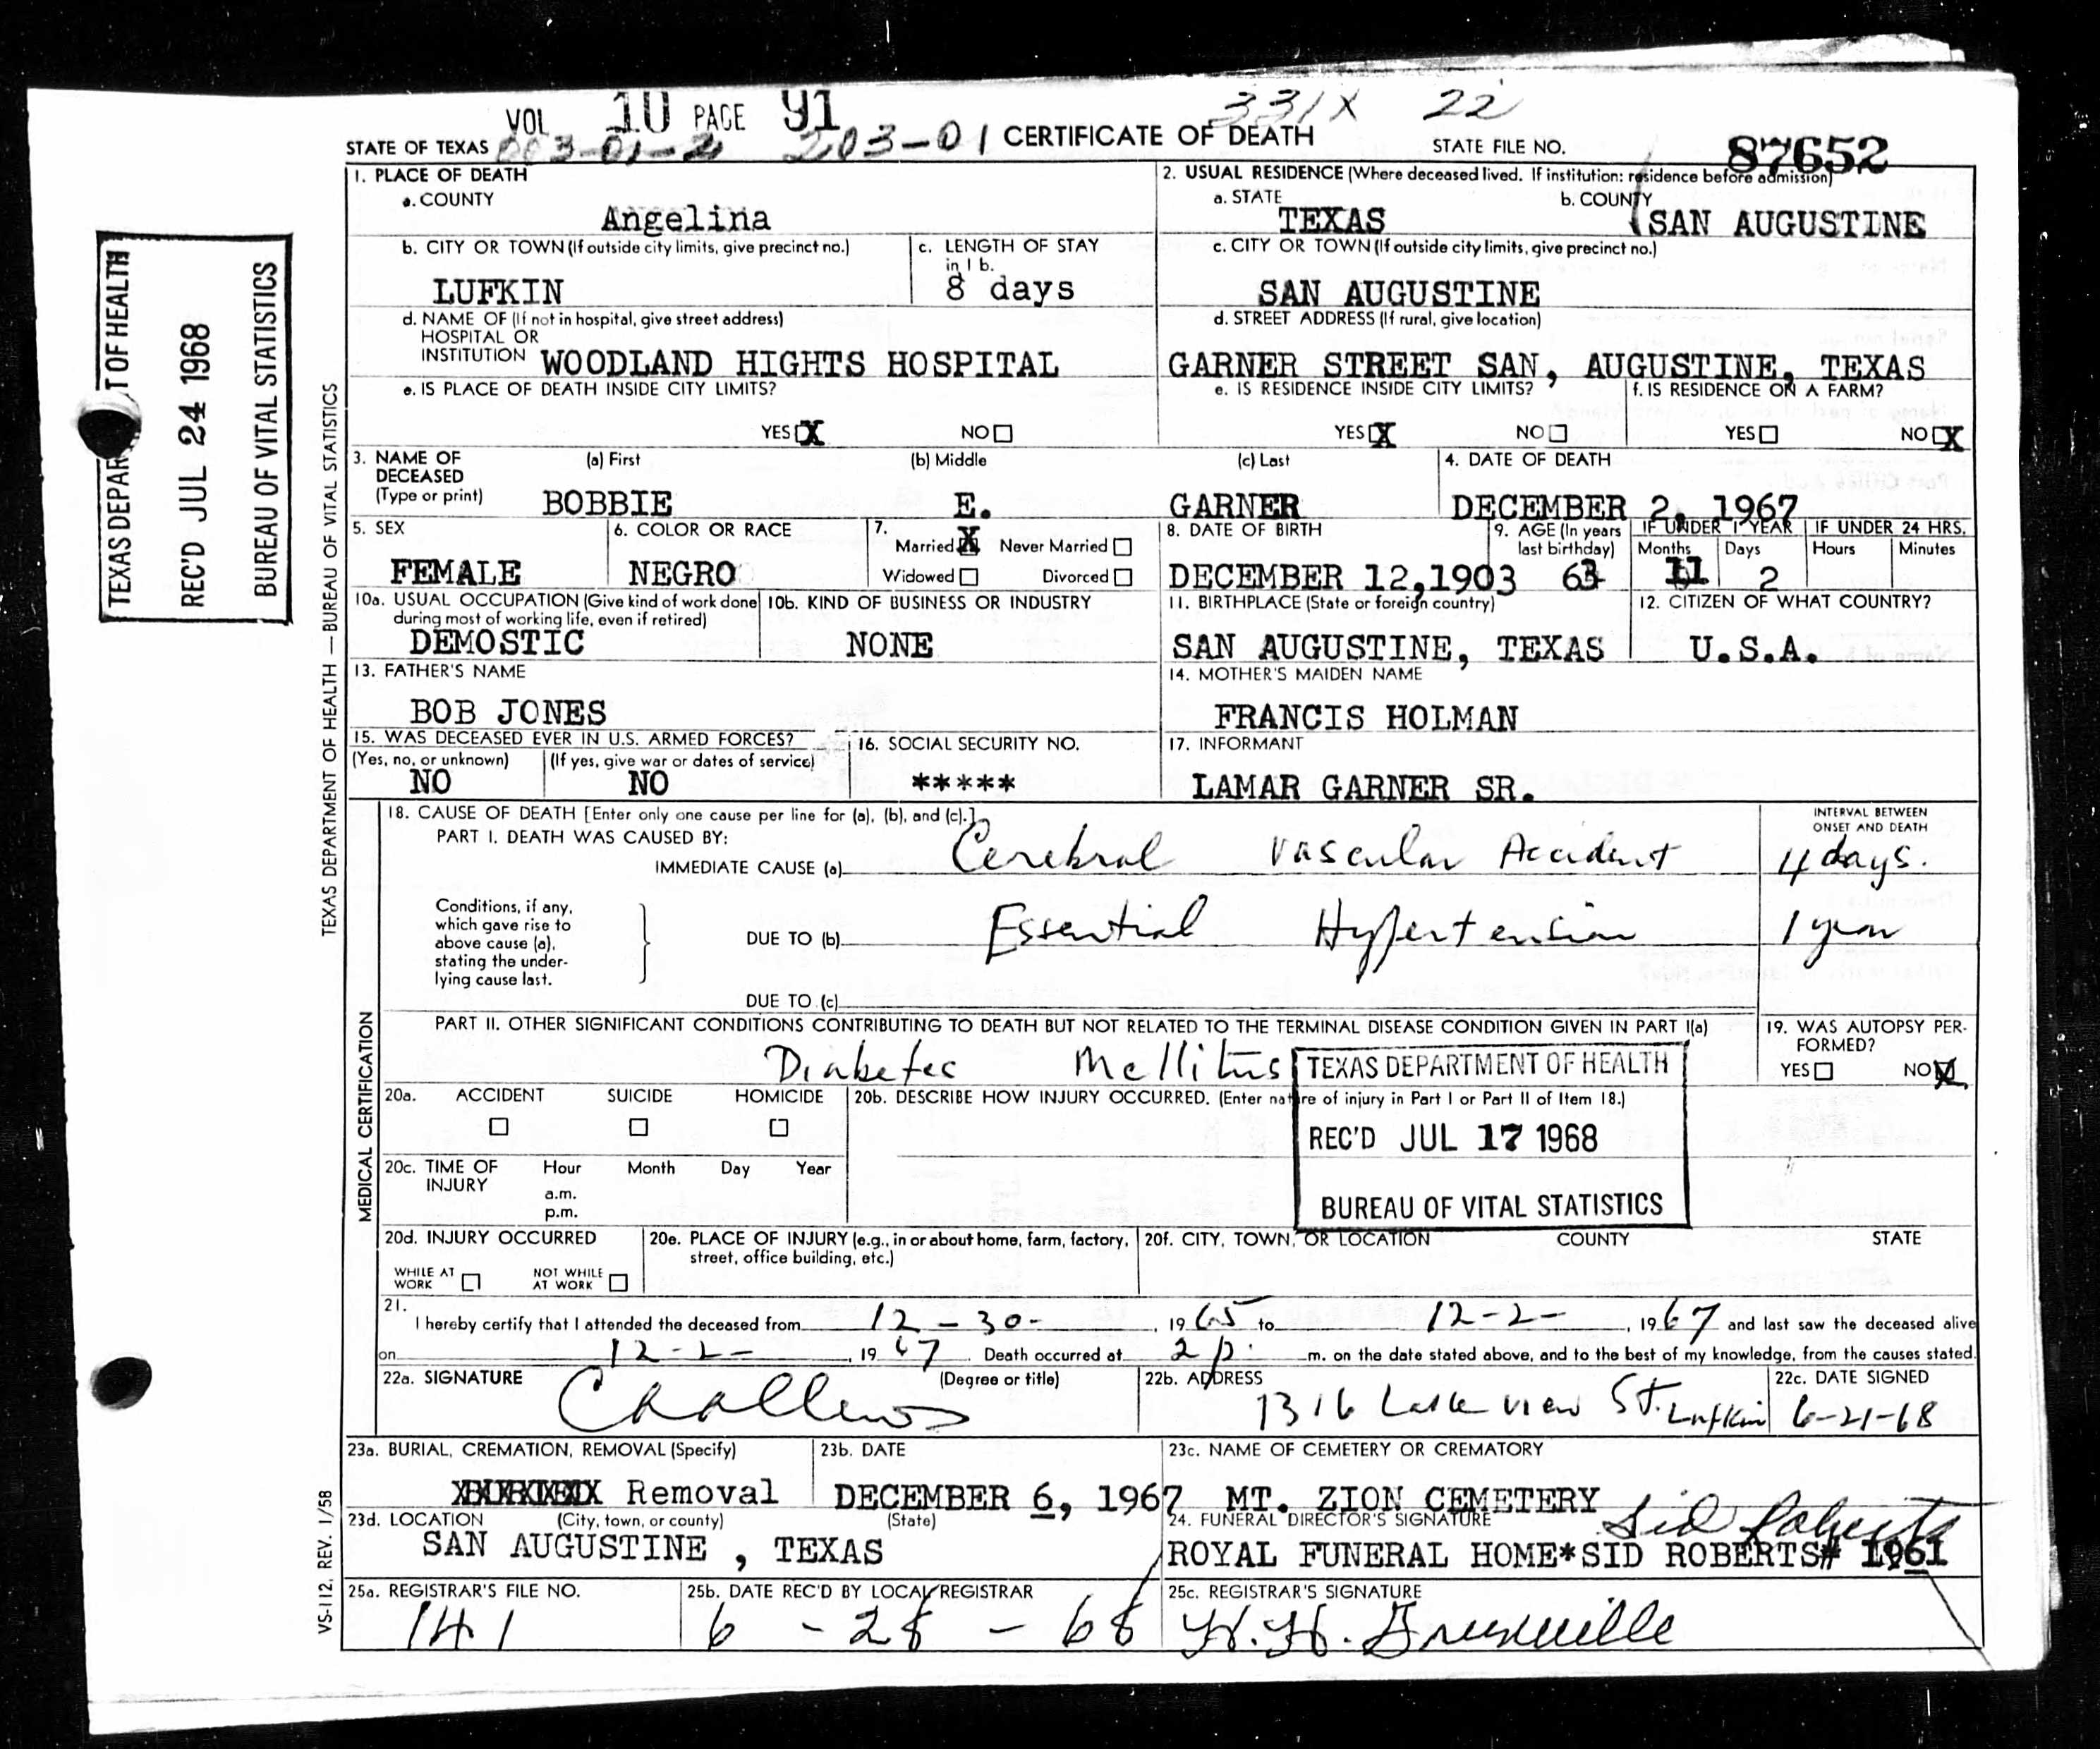 VOL 10 PAGE 91
331X 22
STATE OF TEXAS 003-01-2 203-01 CERTIFICATE OF DEATH STATE FILE NO. 87652
1. PLACE OF DEATH
a. COUNTY
Angelina
2. USUAL RESIDENCE (Where deceased lived. If institution: residence before admission)
a. STATE
TEXAS
b. COUNTY
SAN AUGUSTINE
b. CITY OR TOWN (If outside city limits, give precinct no.)
LUFKIN
c. LENGTH OF STAY
in 1 b.
8 days
c. CITY OR TOWN (If outside city limits, give precinct no.)
SAN AUGUSTINE
d. NAME OF (If not in hospital, give street address)
HOSPITAL OR
INSTITUTION WOODLAND HIGHTS HOSPITAL
d. STREET ADDRESS (If rural, give location)
GARNER STREET SAN, AUGUSTINE, TEXAS
e. IS PLACE OF DEATH INSIDE CITY LIMITS?
YES X NO
e. IS RESIDENCE INSIDE CITY LIMITS?
YES X NO
f. IS RESIDENCE ON A FARM?
YES NO X
3. NAME OF
DECEASED
(Type or print)
(a) First (b) Middle (c) Last
BOBBIE E. GARNER
4. DATE OF DEATH
DECEMBER 2, 1967
5. SEX
FEMALE
6. COLOR OR RACE
NEGRO
7.
Married X Never Married
Widowed Divorced
8. DATE OF BIRTH
DECEMBER 12,1903
9. AGE (In years
last birthday)
63
IF UNDER 1 YEAR
Months Days
11 2
IF UNDER 24 HRS.
Hours Minutes
10a. USUAL OCCUPATION (Give kind of work done
during most of working life, even if retired)
DEMOSTIC
10b. KIND OF BUSINESS OR INDUSTRY
NONE
11. BIRTHPLACE (State or foreign country)
SAN AUGUSTINE, TEXAS
12. CITIZEN OF WHAT COUNTRY?
U.S.A.
13. FATHER'S NAME
BOB JONES
14. MOTHER'S MAIDEN NAME
FRANCIS HOLMAN
15. WAS DECEASED EVER IN U.S. ARMED FORCES?
(Yes, no, or unknown) (If yes, give war or dates of service)
NO NO
16. SOCIAL SECURITY NO.
*****
17. INFORMANT
LAMAR GARNER SR.
18. CAUSE OF DEATH [Enter only one cause per line for (a), (b), and (c).]
PART I. DEATH WAS CAUSED BY:
IMMEDIATE CAUSE (a) Cerebral Vascular Accident
INTERVAL BETWEEN
ONSET AND DEATH
4 days.
Conditions, if any,
which gave rise to
above cause (a),
stating the under-
lying cause last.
DUE TO (b) Essential Hypertension
1 year
DUE TO (c)
PART II. OTHER SIGNIFICANT CONDITIONS CONTRIBUTING TO DEATH BUT NOT RELATED TO THE TERMINAL DISEASE CONDITION GIVEN IN PART I(a)
Diabetes Mellitus
19. WAS AUTOPSY PER-
FORMED?
YES NO X
TEXAS DEPARTMENT OF HEALTH
REC'D JUL 17 1968
BUREAU OF VITAL STATISTICS
20a. ACCIDENT SUICIDE HOMICIDE
20b. DESCRIBE HOW INJURY OCCURRED. (Enter nature of injury in Part I or Part II of Item 18.)
20c. TIME OF
INJURY
Hour Month Day Year
a.m.
p.m.
20d. INJURY OCCURRED
WHILE AT
WORK
NOT WHILE
AT WORK
20e. PLACE OF INJURY (e.g., in or about home, farm, factory,
street, office building, etc.)
20f. CITY, TOWN, OR LOCATION COUNTY STATE
21.
I hereby certify that I attended the deceased from 12-30- , 19 65 to 12-2- , 19 67 and last saw the deceased alive
on 12-2- , 19 67 . Death occurred at 2 p. m. on the date stated above, and to the best of my knowledge, from the causes stated.
22a. SIGNATURE (Degree or title)
22b. ADDRESS
1316 Lake view St. Lufkin
22c. DATE SIGNED
6-21-68
23a. BURIAL, CREMATION, REMOVAL (Specify)
Removal
23b. DATE
DECEMBER 6, 1967
23c. NAME OF CEMETERY OR CREMATORY
MT. ZION CEMETERY
23d. LOCATION (City, town, or county) (State)
SAN AUGUSTINE , TEXAS
24. FUNERAL DIRECTOR'S SIGNATURE
Sid Roberts
ROYAL FUNERAL HOME*SID ROBERTS# 1961
25a. REGISTRAR'S FILE NO.
141
25b. DATE REC'D BY LOCAL REGISTRAR
6 - 28 - 68
25c. REGISTRAR'S SIGNATURE
TEXAS DEPARTMENT OF HEALTH — BUREAU OF VITAL STATISTICS
MEDICAL CERTIFICATION
VS-112, REV. 1/58
TEXAS DEPAR T OF HEALTH
REC'D JUL 24 1968
BUREAU OF VITAL STATISTICS